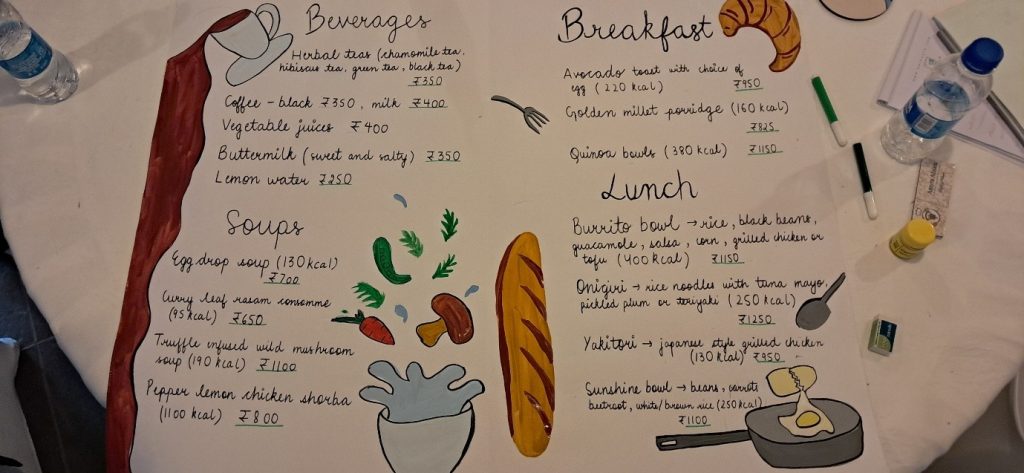 Beverages
Herbal teas (chamomile tea,
hibiscus tea, green tea, black tea)
₹350
Coffee - black ₹350, milk ₹400
Vegetable juices ₹400
Buttermilk (sweet and salty) ₹350
Lemon water ₹250
Soups
Egg drop soup (130 kcal)
₹700
Curry leaf rasam consomme
(95 kcal) ₹650
Truffle infused wild mushroom
soup (190 kcal) ₹1100
Pepper lemon chicken shorba
(1100 kcal) ₹800
Breakfast
Avocado toast with choice of
egg (220 kcal) ₹950
Golden millet porridge (160 kcal)
₹825
Quinoa bowls (380 kcal) ₹1150
Lunch
Burrito bowl → rice, black beans,
guacamole, salsa, corn, grilled chicken or
tofu (400 kcal) ₹1150
Onigiri → rice noodles with tuna mayo,
pickled plum or teriyaki (250 kcal)
₹1250
Yakitori → japanese style grilled chicken
(130 kcal) ₹950
Sunshine bowl → beans, carrots
beetroot, white/brown rice (250 kcal)
₹1100